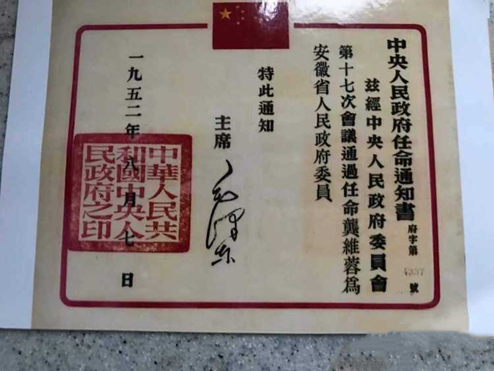 中央人民政府任命通知書
府字第 4337 號
茲經中央人民政府委員會
第十七次會議通過任命龔維蓉爲
安徽省人民政府委員
特此通知
主席
毛澤東
一九五二年八月七日
中華人民共
和國中央人
民政府之印